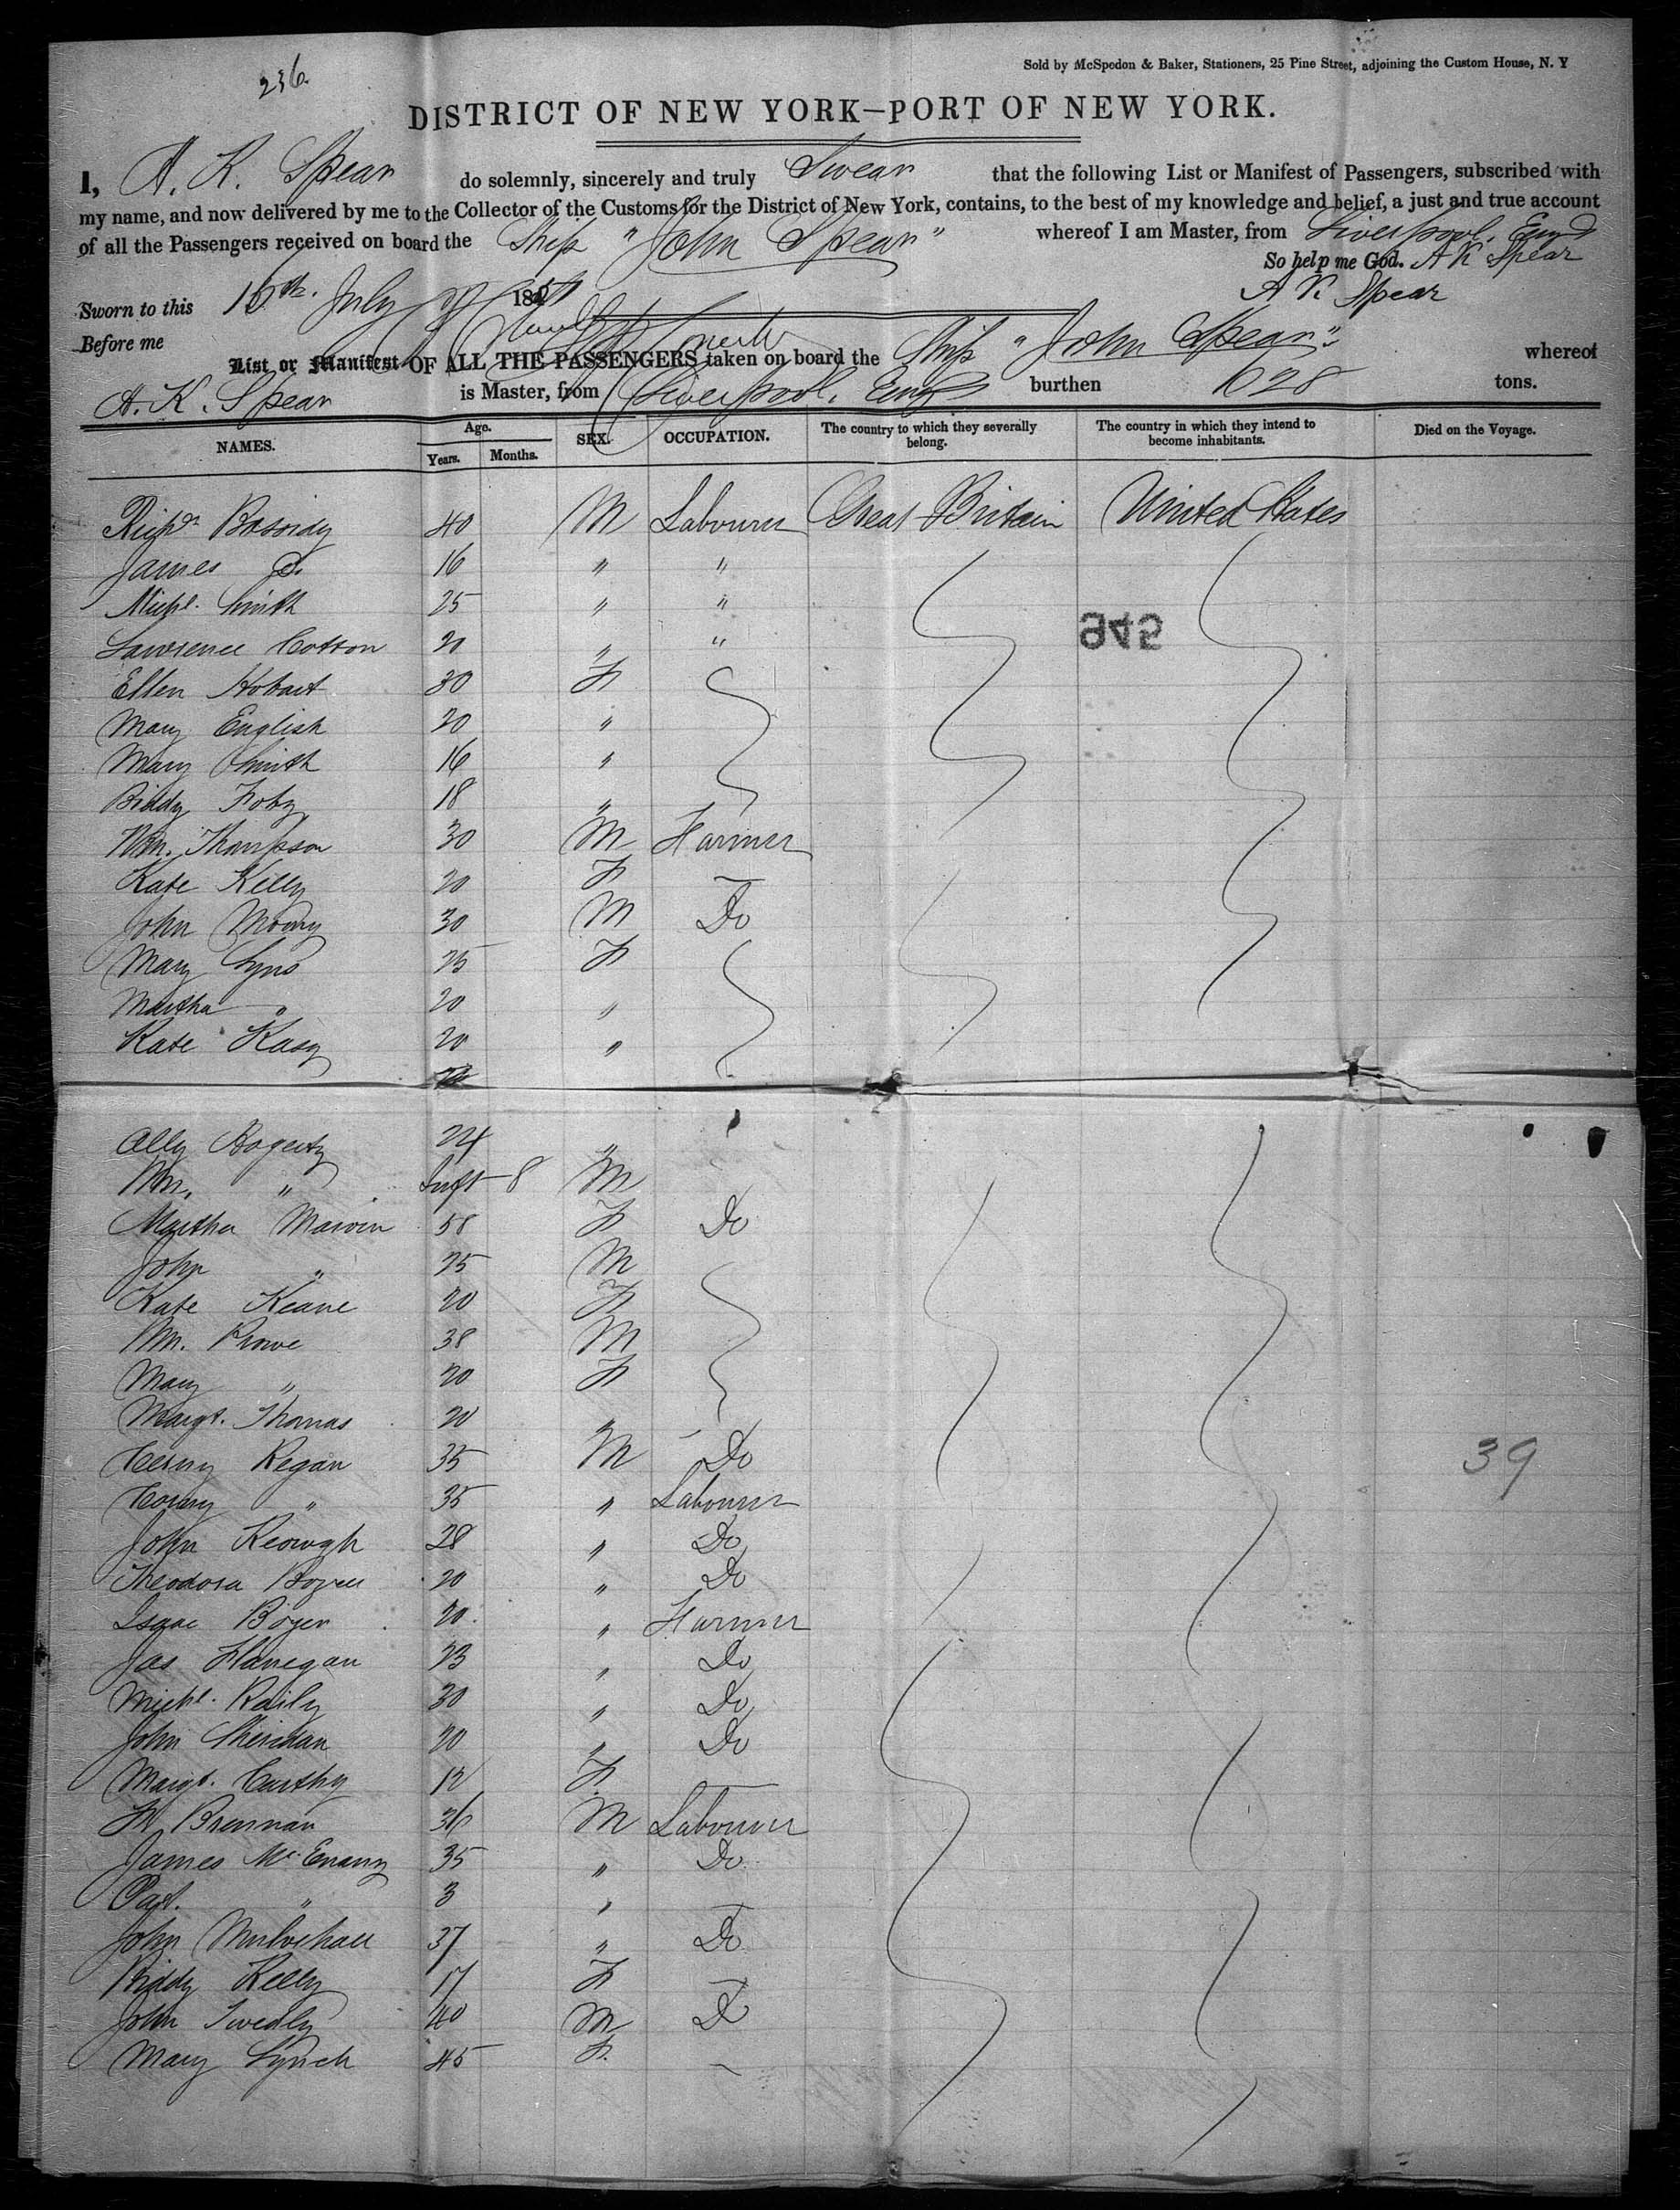 236.
Sold by McSpedon & Baker, Stationers, 25 Pine Street, adjoining the Custom House, N. Y
DISTRICT OF NEW YORK—PORT OF NEW YORK.
I, A. K. Spear do solemnly, sincerely and truly Swear that the following List or Manifest of Passengers, subscribed with
my name, and now delivered by me to the Collector of the Customs for the District of New York, contains, to the best of my knowledge and belief, a just and true account
of all the Passengers received on board the Ship "John Spear" whereof I am Master, from Liverpool. Eng
So help me God. A K Spear
Sworn to this 16th. July 185 A K Spear
Before me
List or Manifest OF ALL THE PASSENGERS taken on board the Ship "John Spear" whereof
A. K. Spear is Master, from Liverpool. Eng burthen 628 tons.
NAMES. Age. Years. Months. SEX. OCCUPATION. The country to which they severally belong. The country in which they intend to become inhabitants. Died on the Voyage.
40 M Labourer Great Britain United States
James Do. 16 " "
Michl. Smith 25 " "
945
Lawrence Cotton 20 " "
Ellen Hobart 30 F
Mary English 20 "
Mary Smith 16 "
Biddy 18 "
Wm. Thompson 30 M Farmer
Kate Kelly 20 F —
John 30 M Do
Mary Lyns 25 F
Martha " 20 "
Kate Kasy 20 "
Ally 24 "
Wm. " Inft 8 M
Martha Marvin 58 F Do
John " 25 M
Kate Keane 20 F
Wm. 38 M
Mary " 20 F
Margt. Thomas 20 " —
Regan 35 M Do
39
" 35 " Labourer
John Keough 28 " Do
Theodora 20 " Do
Isaac Boyer 20. " Farmer
Jas Flanegan 23 " Do
Michl. Reily 30 " Do
John Sheridan 20 " Do
Margt. Carthy 12 F —
Brennan 36 M Labourer
James Mc Enany 35 " Do
Pat. " 3 " —
John Mulvehall 37 " Do
Biddy Kelly 17 F —
John 40 M Do
Mary Lynch 45 F. —